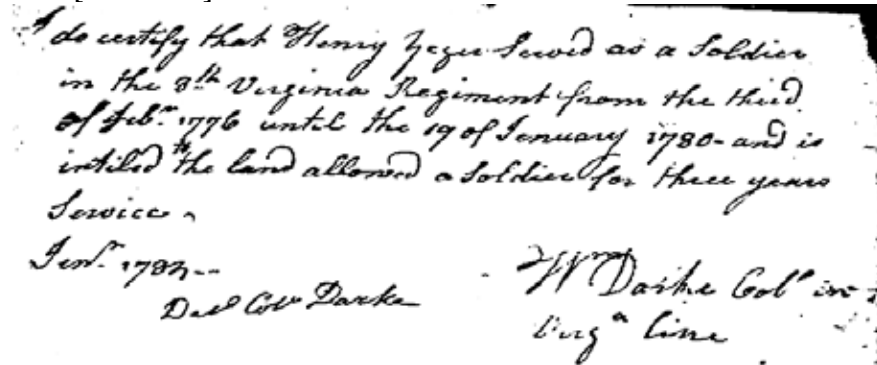 I do certify that Henry Yeger Served as a Soldier
in the 8th Virginia Regiment from the third
of Feb.r 1776 until the 19 of Jenuary 1780- and is
intiled to the land allowed a Soldier for three years
Service
Jenr
Wm Darke Colo in
Virga line
Colo Darke